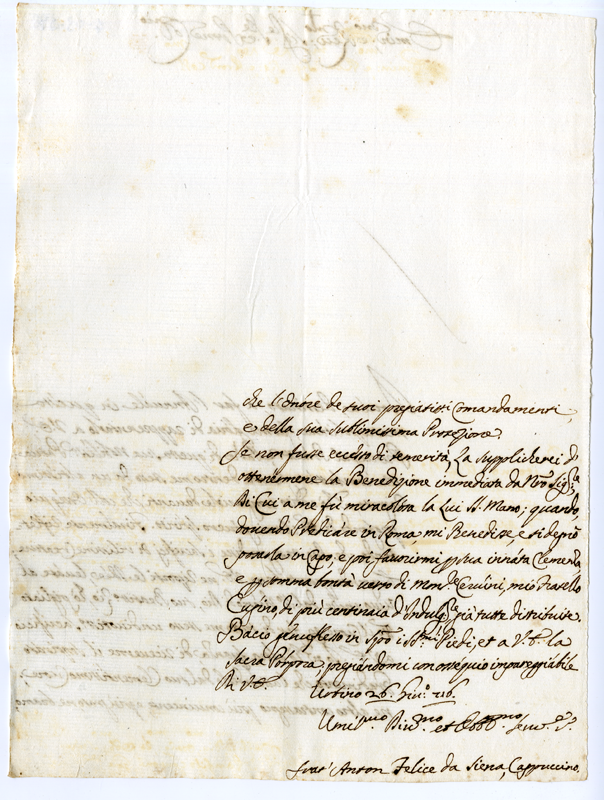 che l'onore de suoi pregiatis.i Comandamenti,
e della sua sublimissima Protezione.
Se non fusse eccesso di temerità, La supplicherei d'
ottenermene la Benedizione immediata da Nro' Sig.re
Di Cui a me fù miracolosa la Lui S. Mano; quando,
dovendo Predicare in Roma mi Benedisse, e si degnò
posarla in Capo, e poi favorirmi p sua innata Clemenza
e p somma bontà verso di Mon.r Cervini, mio Fratello
Cugino, di più centinaia d'Indulg.ze già tutte distribuite.
Bacio genuflesso in Spo' i S.mi Piedi, et a V. E. la
Sacra Porpora, pregiandomi con ossequio impareggiabile
Di V. E. Urbino 26. Giu.o 716.
Umi.mo Div.mo et Obb.mo Serv.
Frat' Anton Felice da Siena, Cappuccino.